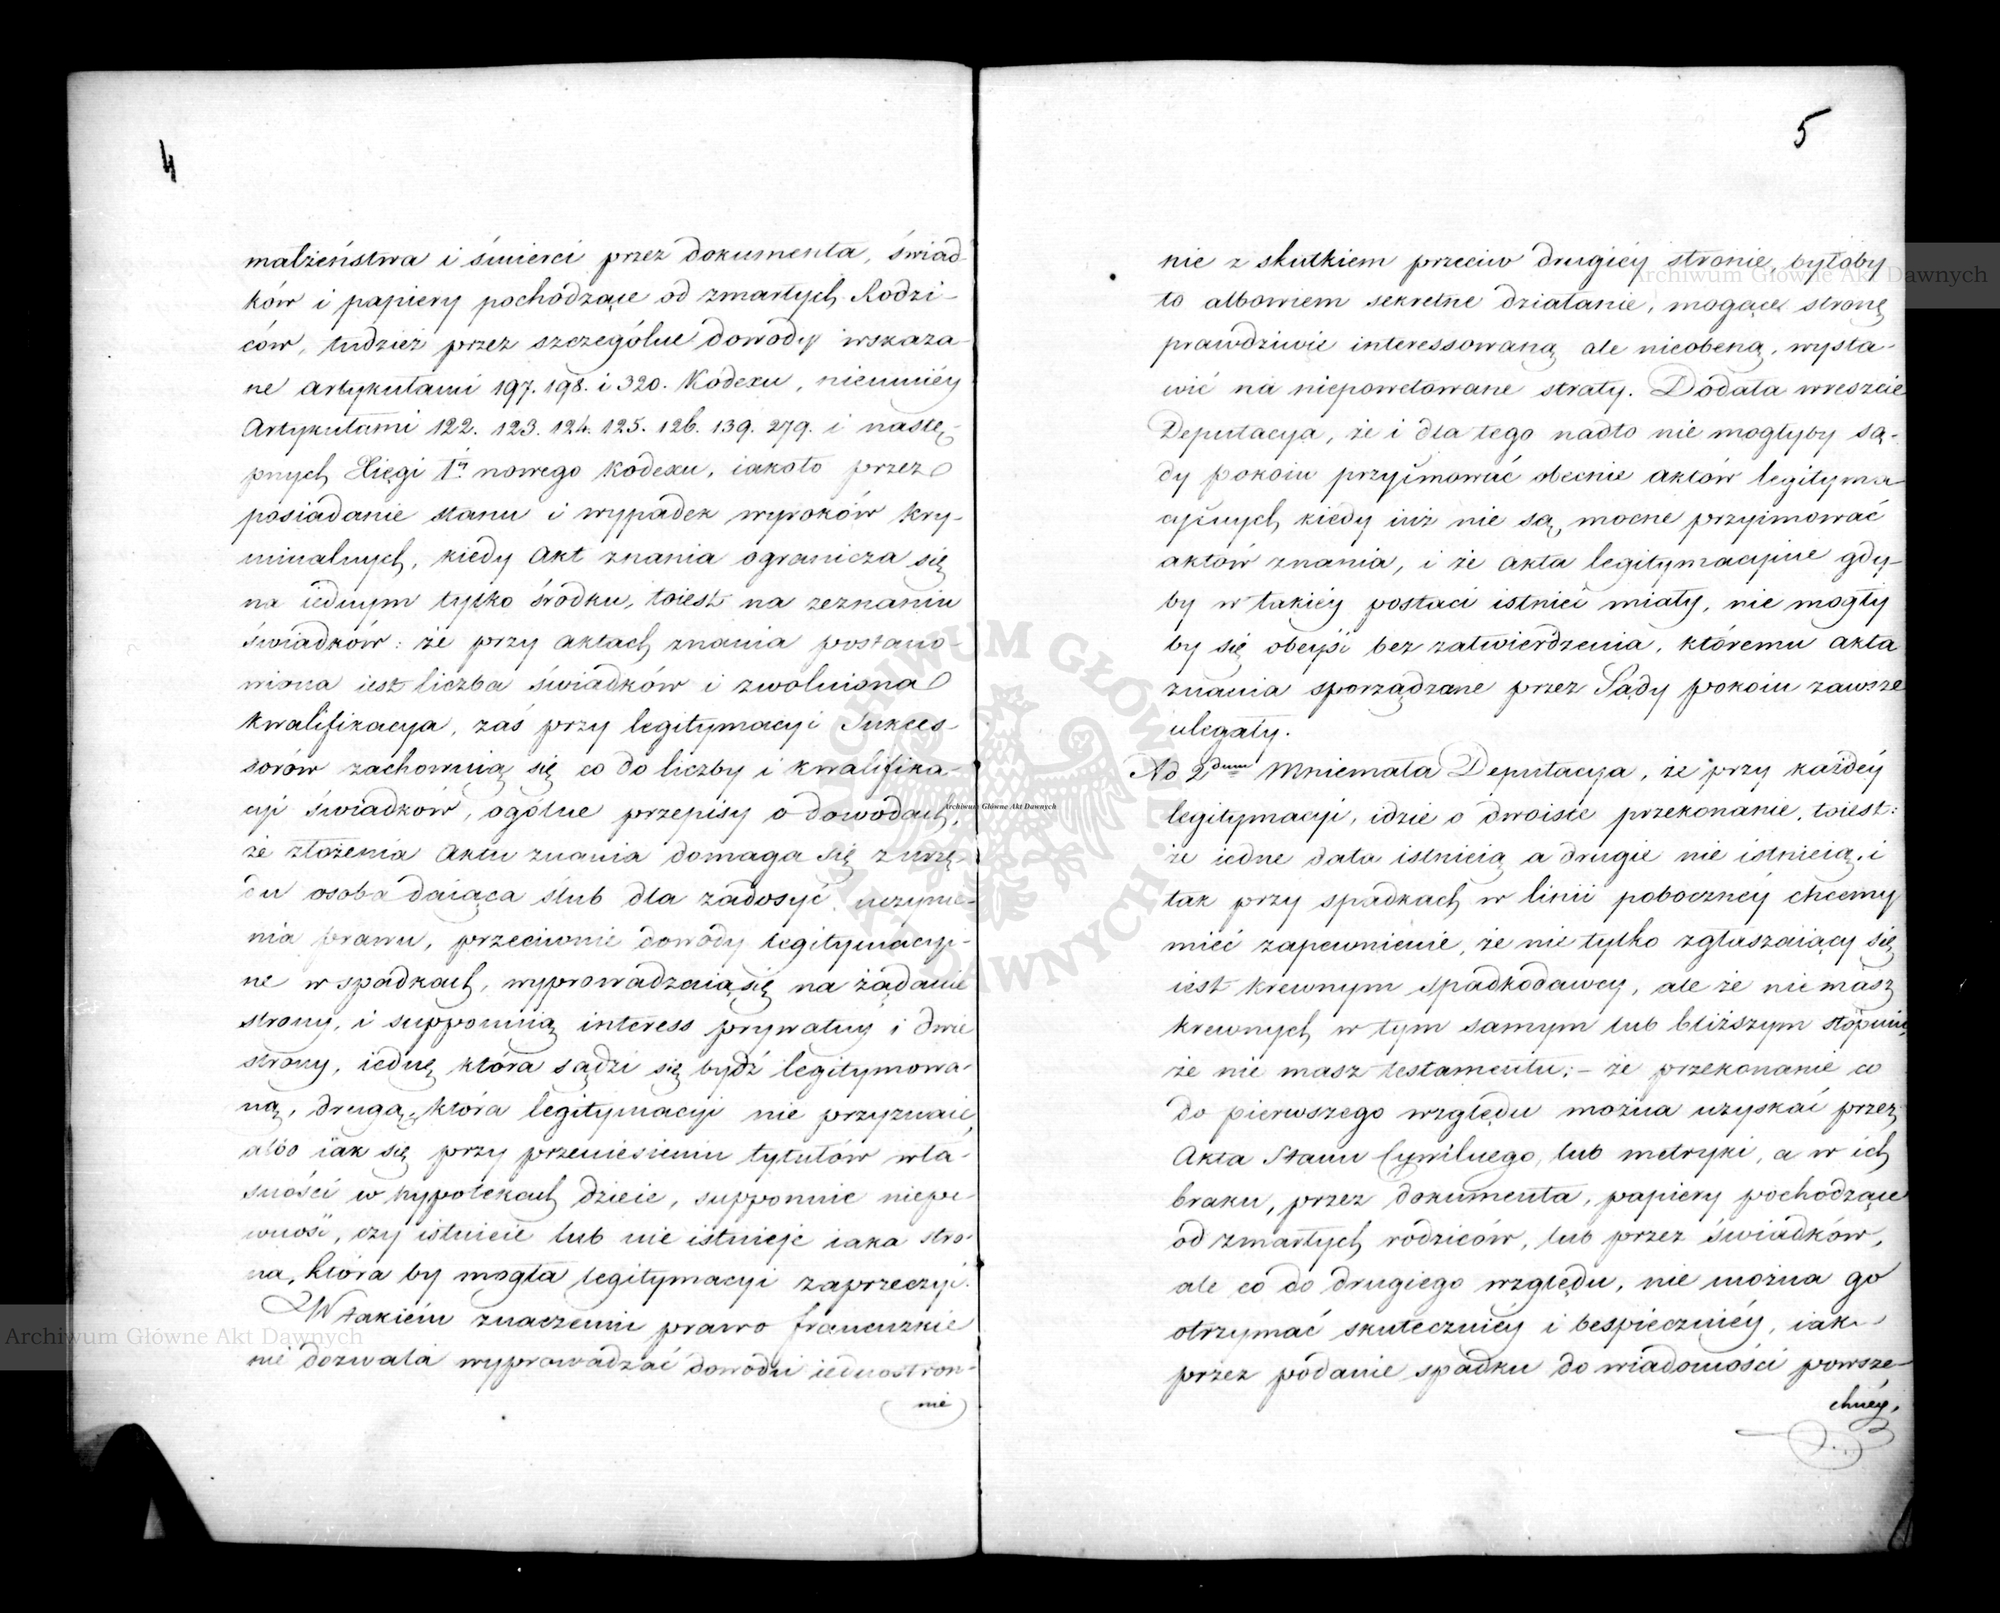 4
małżeństwa i śmierci przez dokumenta, świad-
ków i papiery pochodzące od zmarłych Rodzi-
ców, tudzież przez szczególne dowody wskaza-
ne artykułami 197. 198. i 320. Kodexu, niemniéy
Artykułami 122. 123. 124. 125. 126. 139. 279. i nastę-
pnych Xięgi 1éy nowego Kodexu, iakoto przez
posiadanie stanu i wypadek wyroków kry-
minalnych, kiedy Akt znania ogranicza się
na iednym tylko środku, toiest na zeznaniu
świadków: że przy aktach znania postano-
wiona iest liczba świadków i zwolniona
kwalifikacya, zaś przy legitymacyi Sukces-
sorów zachowuią się co do liczby i kwalifika-
cyi świadków, ogólne przepisy o dowodach,
że złożenia Aktu znania domaga się z urzę-
du osoba daiąca ślub dla zadosyć uczynie-
nia prawu, przeciwnie dowody legitymacyi-
ne w spadkach, wyprowadzaią się na żądanie
strony, i supponuią interess prywatny i dwie
strony, iednę która sądzi się bydź legitymowa-
ną, drugą, która legitymacyi nie przyznaie,
albo iak się przy przeniesieniu tytułów wła-
sności w hypotekach dzieie, supponuie niepe-
wność, czy istnieie lub nie istnieje iaka stro-
na, która by mogła legitymacyi zaprzeczyć.
W takiém znaczeniu prawo francuzkie
nie dozwala wyprowadzać dowodu iednostron-
nie
5
nie z skutkiem przeciw drugiéy stronie, byłoby
to albowiem sekretne działanie, mogące stronę
prawdziwie interessowaną ale nieobecną, wysta-
wić na niepowetowane straty. Dodała wreszcie
Deputacya, że i dla tego nadto nie mogłyby są-
dy pokoiu przyimować obecnie aktów legityma-
cyinych, kiedy iuż nie są mocne przyimować
aktów znania, i że akta legitymacyine gdy-
by w takiéy postaci istnieć miały, nie mogły
by się obeyść bez zatwierdzenia, któremu akta
znania sporządzane przez Sądy pokoiu zawsze
ulegały.
Ad 2dum Mniemała Deputacya, że przy każdéy
legitymacyi, idzie o dwoiste przekonanie, toiest:
że iedne data istnieią a drugie nie istnieią, i
tak przy spadkach w linii pobocznéy chcemy
mieć zapewnienie, że nie tylko zgłaszaiący się
iest krewnym spadkodawcy, ale że nie masz
krewnych w tym samym lub bliższym stopniu,
że nie masz testamentu; – że przekonanie co
do pierwszego względu można uzyskać przez
Akta Stanu Cywilnego, lub metryki, a w ich
braku, przez dokumenta, papiery pochodzące
od zmarłych rodziców, lub przez świadków,
ale co do drugiego względu, nie można go
otrzymać skuteczniéy i bespieczniéy, iak
przez podanie spadku do wiadomości powsze-
chnéy,
Archiwum Główne Akt Dawnych
Archiwum Główne Akt Dawnych
Archiwum Główne Akt Dawnych
ARCHIWUM GŁÓWNE AKT DAWNYCH